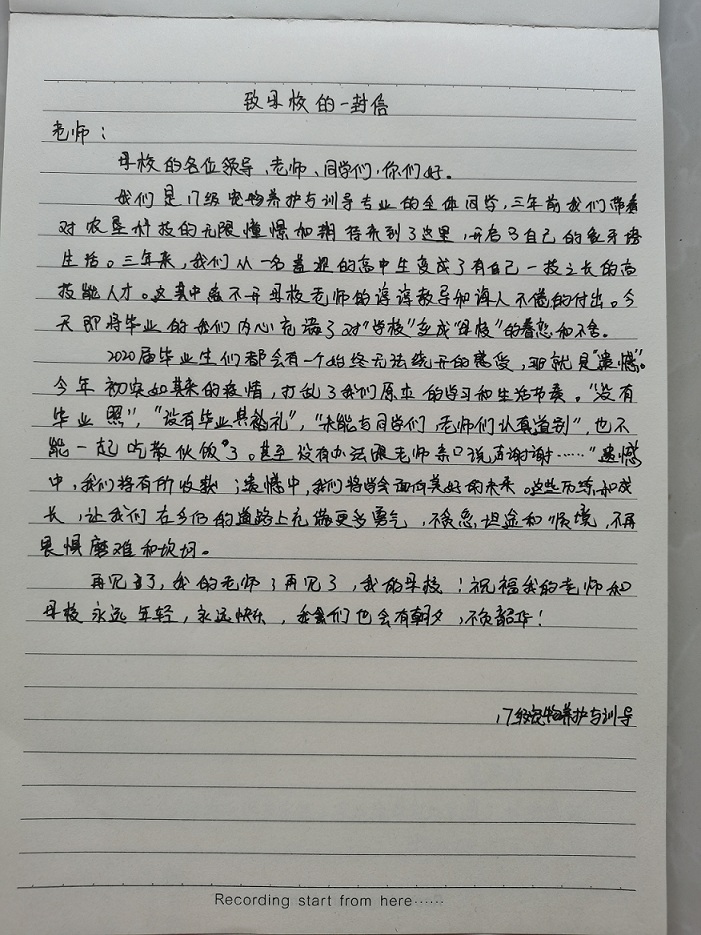 致母校的一封信
老师：
母校的各位领导、老师、同学们，你们好。
我们是17级宠物养护与训导专业的全体同学，三年前我们带着
对农垦科技的无限憧憬和期待来到了这里，开启了自己的象牙塔
生活。三年来，我们从一名普通的高中生变成了有自己一技之长的高
技能人才。这其中离不开母校老师的谆谆教导和诲人不倦的付出。今
天即将毕业的我们内心充满了对“学校”变成“母校”的眷恋和不舍。
2020届毕业生们都会有一个始终无法绕开的感受，那就是“遗憾”。
今年初突如其来的疫情，打乱了我们原本的学习和生活节奏。“没有
毕业照”，“没有毕业典礼”，“未能与同学们，老师们认真道别”，也不
能一起吃散伙饭了。甚至没有办法跟老师亲口说声谢谢……“遗憾
中，我们将有所收获；遗憾中，我们将学会面向美好的未来。这些历练和成
长，让我们在今后的道路上充满更多勇气，不贪恋坦途和顺境，不再
畏惧磨难和坎坷。
再见了，我的老师；再见了，我的母校！祝福我的老师和
母校永远年轻，永远快乐，我们也会有朝夕，不负韶华！
17级宠物养护与训导
Recording start from here······